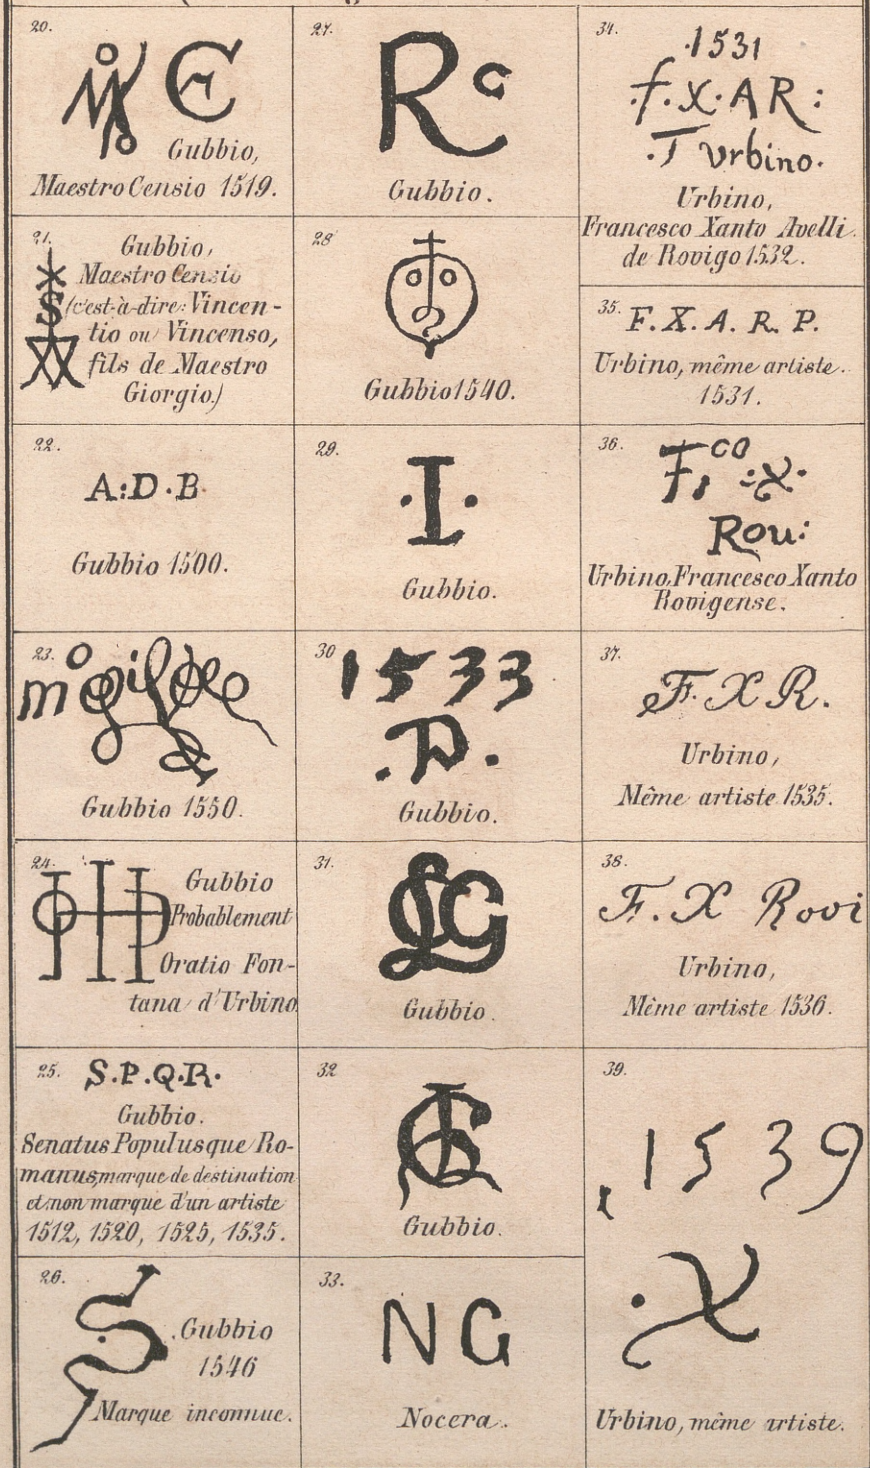 20.
M° C
Gubbio,
Maestro Censio 1519.
21.
Gubbio,
Maestro Censio
S (c'est-à-dire: Vincen-
tio ou Vincenso,
fils de Maestro
Giorgio.)
22.
A:D.B
Gubbio 1500.
23.
Gubbio 1550.
24.
Gubbio
Probablement
Oratio Fon-
tana d'Urbino
25.
S.P.Q.R.
Gubbio.
Senatus Populusque Ro-
manus, marque de destination
et non marque d'un artiste
1512, 1520, 1525, 1535.
26.
S
Gubbio
1546
Marque inconnue.
27.
Rc
Gubbio.
28
Gubbio 1540.
29.
.I.
Gubbio.
30
1533
.P.
Gubbio.
31.
Gubbio.
32
Gubbio.
33.
N G
Nocera.
34.
.1531
.f.X.AR:
.I Vrbino.
Urbino,
Francesco Xanto Avelli.
de Rovigo 1532.
35.
F.X.A.R.P.
Urbino, même artiste.
1531.
36.
F co :X.
Rou:
Urbino, Francesco Xanto
Rovigense.
37.
F.X R.
Urbino,
Même artiste 1535.
38.
F.X Rovi
Urbino,
Même artiste 1536.
39.
1539
.X
Urbino, même artiste.